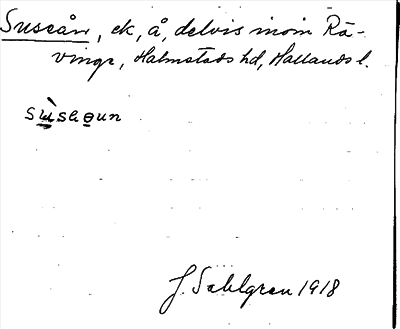 Suseån, ek, å, delvis inom Rä-
vinge, Halmstads hd, Hallands l.
sùseoun
J. Sahlgren 1918